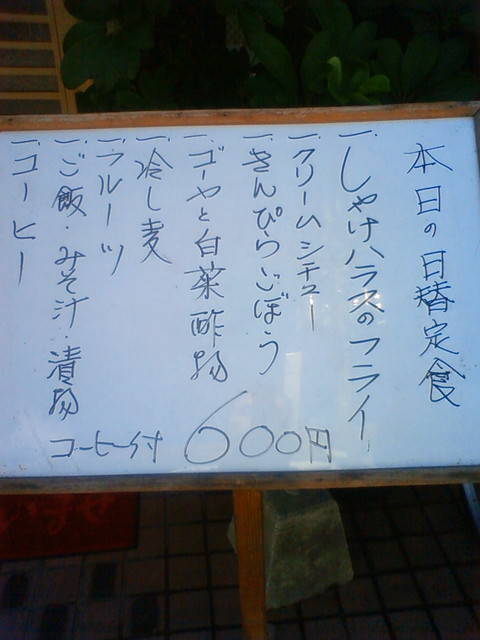 本日の日替定食
一、しゃけハラスのフライ
一、クリームシチュー
一、きんぴらごぼう
一、ゴーヤと白菜酢物
一、冷し麦
一、フルーツ
一、ご飯・みそ汁・漬物
一、コーヒー
コーヒー付 600円